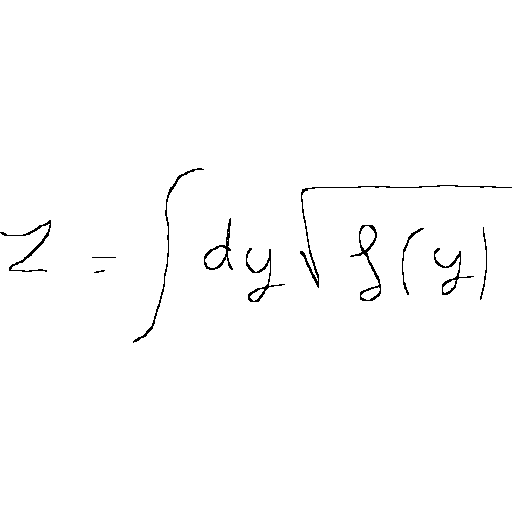 z = \int dy \sqrt{f(y)}